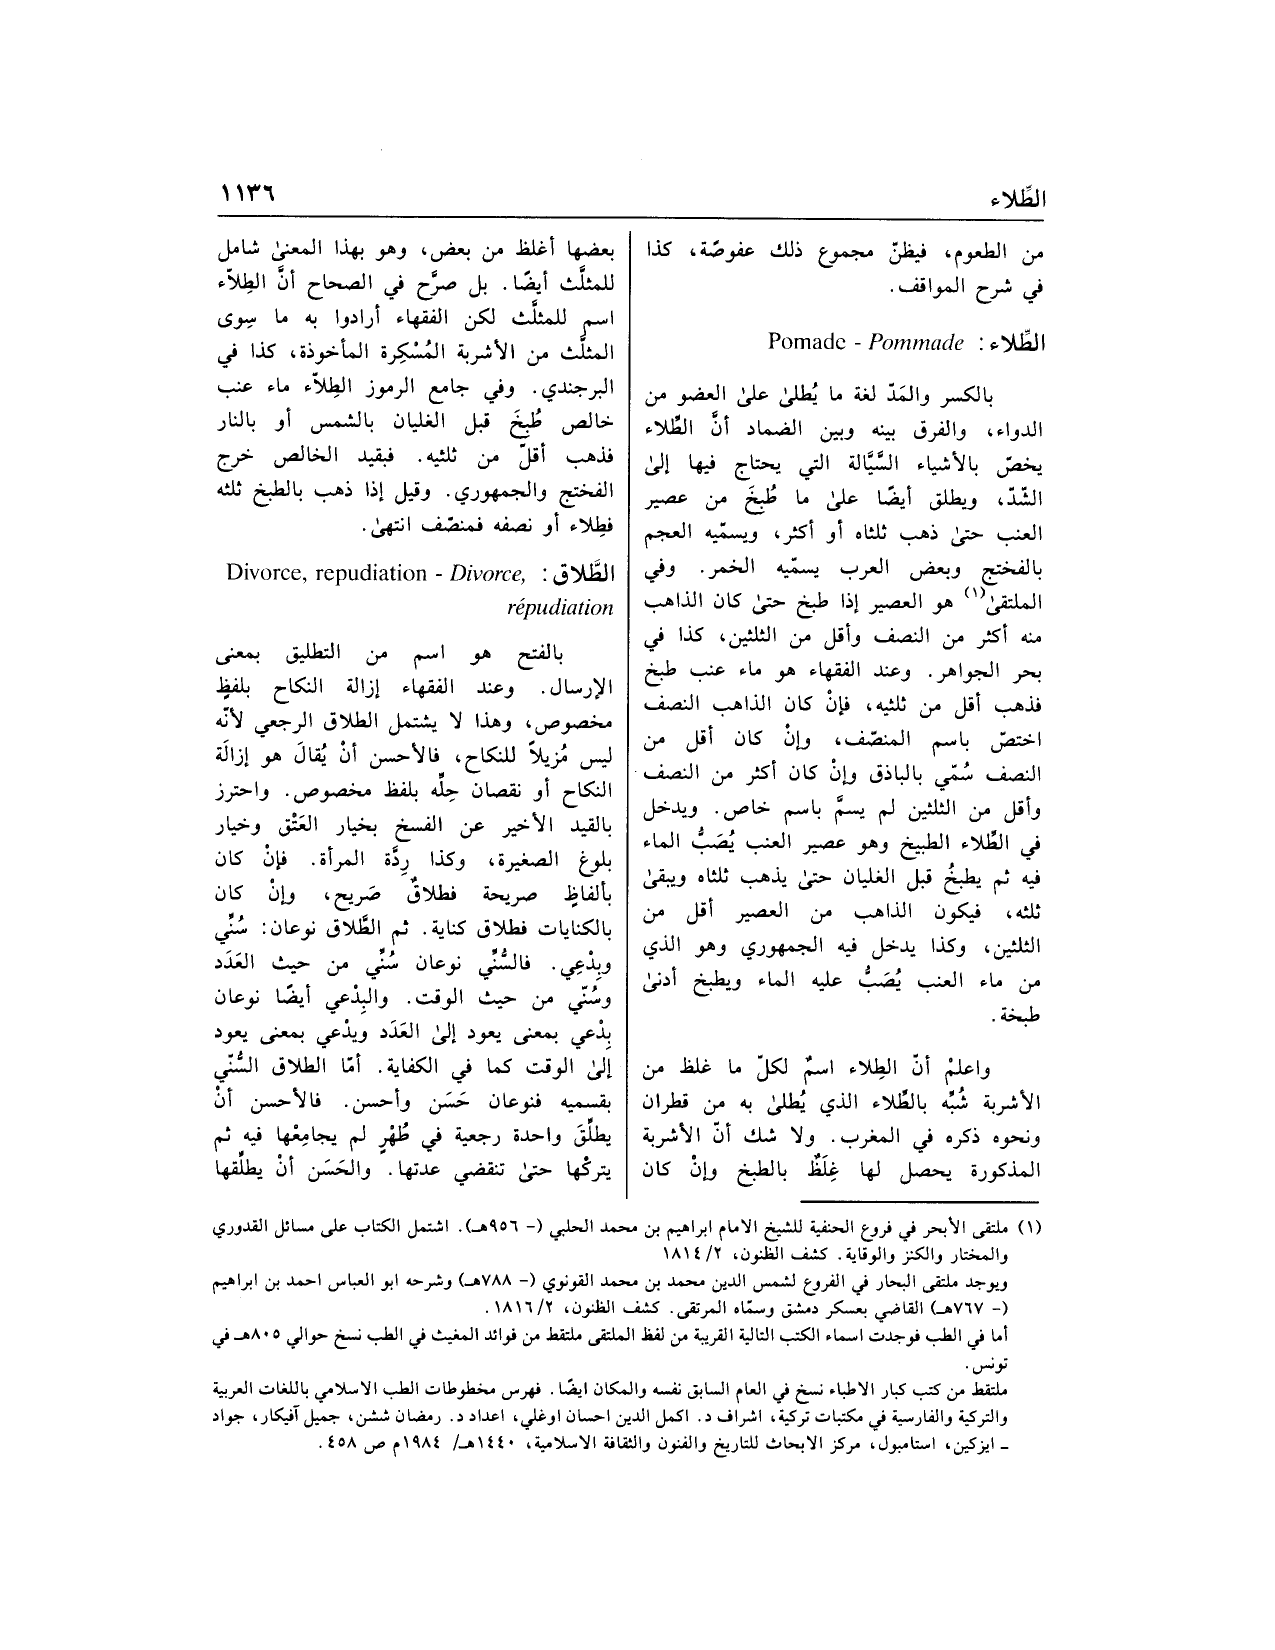 الطِّلاء
١١٣٦
من الطعوم، فيظنّ مجموع ذلك عفوصّة، كذا
في شرح المواقف.
الطِّلاء : Pomade - Pommade
بالكسر والمَدّ لغة ما يُطلىٰ علىٰ العضو من
الدواء، والفرق بينه وبين الضماد أنَّ الطِّلاء
يخصّ بالأشياء السَّيَّالة التي يحتاج فيها إلىٰ
الشّدّ، ويطلق أيضًا علىٰ ما طُبِخَ من عصير
العنب حتىٰ ذهب ثلثاه أو أكثر، ويسمّيه العجم
بالفختج وبعض العرب يسمّيه الخمر. وفي
الملتقىٰ(١) هو العصير إذا طبخ حتىٰ كان الذاهب
منه أكثر من النصف وأقل من الثلثين، كذا في
بحر الجواهر. وعند الفقهاء هو ماء عنب طبخ
فذهب أقل من ثلثيه، فإنْ كان الذاهب النصف
اختصّ باسم المنصّف، وإنْ كان أقل من
النصف سُمّي بالباذق وإنْ كان أكثر من النصف
وأقل من الثلثين لم يسمَّ باسم خاص. ويدخل
في الطِّلاء الطبيخ وهو عصير العنب يُصَبُّ الماء
فيه ثم يطبخُ قبل الغليان حتىٰ يذهب ثلثاه ويبقىٰ
ثلثه، فيكون الذاهب من العصير أقل من
الثلثين، وكذا يدخل فيه الجمهوري وهو الذي
من ماء العنب يُصَبُّ عليه الماء ويطبخ أدنىٰ
طبخة.
واعلمْ أنّ الطِلاء اسمٌ لكلّ ما غلظ من
الأشربة شُبِّه بالطِّلاء الذي يُطلىٰ به من قطران
ونحوه ذكره في المغرب. ولا شك أنّ الأشربة
المذكورة يحصل لها غِلَظٌ بالطبخ وإنْ كان
بعضها أغلظ من بعض، وهو بهذا المعنىٰ شامل
للمثلَّث أيضًا. بل صرَّح في الصحاح أنَّ الطِلاّء
اسم للمثلَّث لكن الفقهاء أرادوا به ما سِوى
المثلَّث من الأشربة المُسْكِرة المأخوذة، كذا في
البرجندي. وفي جامع الرموز الطِلاّء ماء عنب
خالص طُبِخَ قبل الغليان بالشمس أو بالنار
فذهب أقلّ من ثلثيه. فبقيد الخالص خرج
الفختج والجمهوري. وقيل إذا ذهب بالطبخ ثلثه
فطِلاء أو نصفه فمنصّف انتهىٰ.
الطَّلاق : Divorce, repudiation - Divorce,
répudiation
بالفتح هو اسم من التطليق بمعنى
الإرسال. وعند الفقهاء إزالة النكاح بلفظٍ
مخصوص، وهذا لا يشتمل الطلاق الرجعي لأنّه
ليس مُزيلاً للنكاح، فالأحسن أنْ يُقالَ هو إزالَة
النكاح أو نقصان حِلّه بلفظ مخصوص. واحترز
بالقيد الأخير عن الفسخ بخيار العَتْق وخيار
بلوغ الصغيرة، وكذا رِدَّة المرأة. فإنْ كان
بألفاظٍ صريحة فطلاقٌ صَريح، وإنْ كان
بالكنايات فطلاق كناية. ثم الطَّلاق نوعان: سُنِّي
وبِدْعِي. فالسُّنِّي نوعان سُنِّي من حيث العَدَد
وسُنّي من حيث الوقت. والبِدْعي أيضًا نوعان
بِدْعي بمعنى يعود إلىٰ العَدَد وبدْعي بمعنى يعود
إلىٰ الوقت كما في الكفاية. أمّا الطلاق السُّنّي
بقسميه فنوعان حَسَن وأحسن. فالأحسن أنْ
يطلِّقَ واحدة رجعية في طُهْرٍ لم يجامِعْها فيه ثم
يتركْها حتىٰ تنقضي عدتها. والحَسَن أنْ يطلِّقها
(١) ملتقى الأبحر في فروع الحنفية للشيخ الامام ابراهيم بن محمد الحلبي (- ٩٥٦هـ). اشتمل الكتاب على مسائل القدوري
والمختار والكنز والوقاية. كشف الظنون، ٢/ ١٨١٤
ويوجد ملتقى البحار في الفروع لشمس الدين محمد بن محمد القونوي (- ٧٨٨هـ) وشرحه ابو العباس احمد بن ابراهيم
(- ٧٦٧هـ) القاضي بعسكر دمشق وسمّاه المرتقى. كشف الظنون، ٢/ ١٨١٦.
أما في الطب فوجدت اسماء الكتب التالية القريبة من لفظ الملتقى ملتقط من فوائد المغيث في الطب نسخ حوالي ٨٠٥هـ في
تونس.
ملتقط من كتب كبار الاطباء نسخ في العام السابق نفسه والمكان ايضًا. فهرس مخطوطات الطب الاسلامي باللغات العربية
والتركية والفارسية في مكتبات تركية، اشراف د. اكمل الدين احسان اوغلي، اعداد د. رمضان ششن، جميل آقيكار، جواد
ـ ايزكين، استامبول، مركز الابحاث للتاريخ والفنون والثقافة الاسلامية، ١٤٤٠هـ/ ١٩٨٤م ص ٤٥٨.